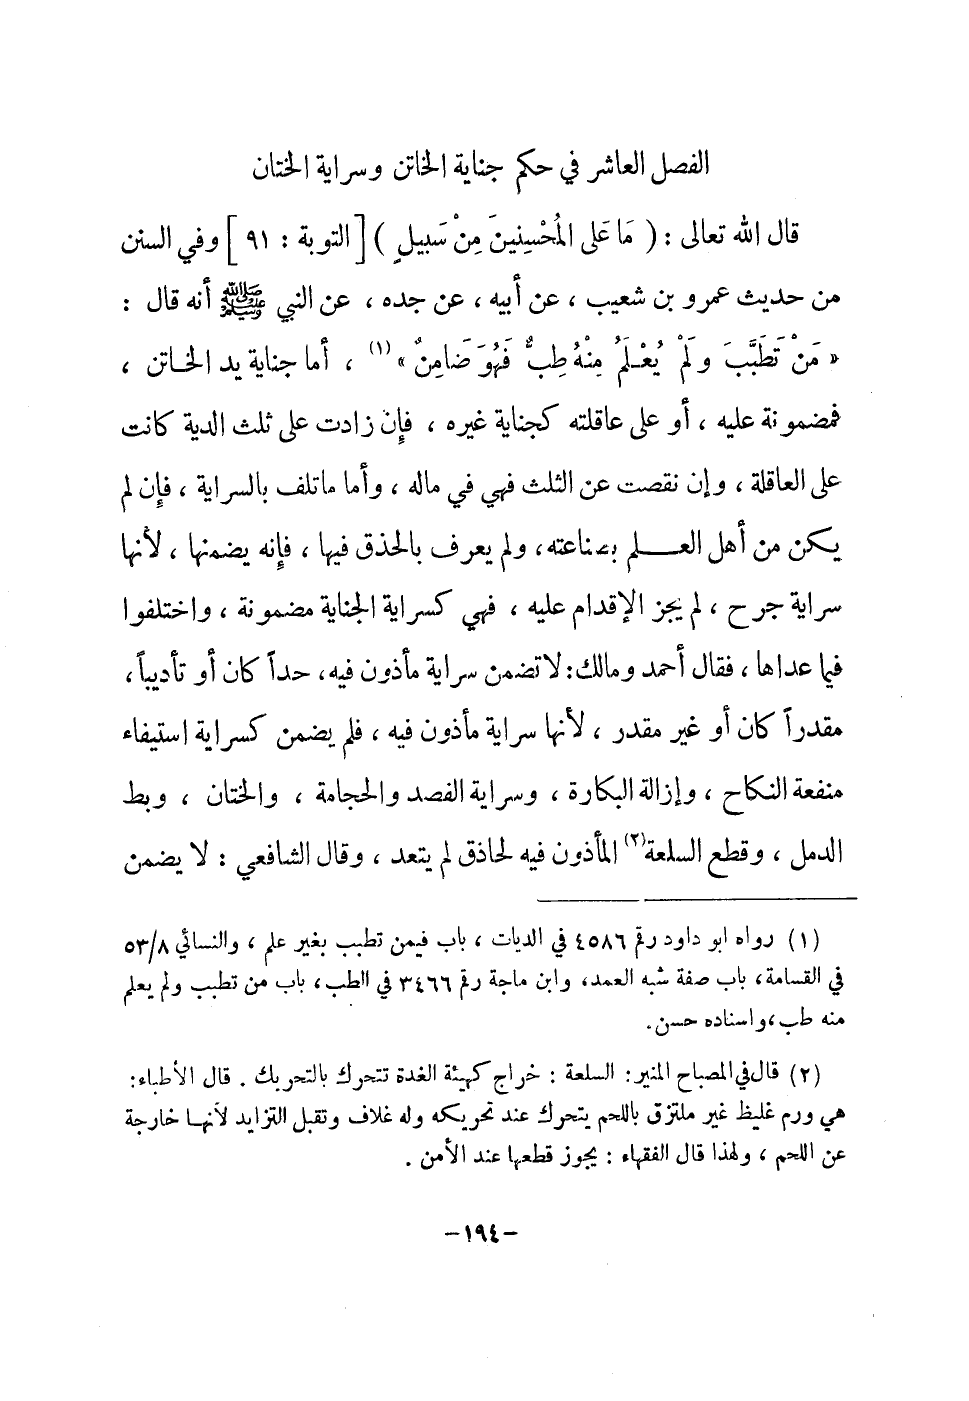 الفصل العاشر في حكم جناية الخاتن وسراية الختان
قال الله تعالى : ( مَا عَلى المُحْسِنِينَ مِنْ سَبِيلٍ ) [ التوبة : ٩١ ] وفي السنن
من حديث عمرو بن شعيب ، عن أبيه ، عن جده ، عن النبي ﷺ أنه قال :
« مَنْ تَطَبَّبَ وَلَمْ يُعْلَمُ مِنْهُ طِبٌّ فَهُوَ ضَامِنٌ » (١) ، أما جناية يد الخاتن ،
فمضمونة عليه ، أو على عاقلته كجناية غيره ، فإن زادت على ثلث الدية كانت
على العاقلة ، وإن نقصت عن الثلث فهي في ماله ، وأما ماتلف بالسراية ، فإن لم
يكن من أهل العلم بصناعته، ولم يعرف بالحذق فيها ، فإنه يضمنها ، لأنها
سراية جرح ، لم يجز الإقدام عليه ، فهي كسراية الجناية مضمونة ، واختلفوا
فيما عداها ، فقال أحمد ومالك: لاتضمن سراية مأذون فيه، حداً كان أو تأديباً،
مقدراً كان أو غير مقدر ، لأنها سراية مأذون فيه ، فلم يضمن كسراية استيفاء
منفعة النكاح ، وإزالة البكارة ، وسراية الفصد والحجامة ، والختان ، وبط
الدمل ، وقطع السلعة(٢) المأذون فيه لحاذق لم يتعد ، وقال الشافعي : لا يضمن
(١) رواه ابو داود رقم ٤٥٨٦ في الديات ، باب فيمن تطبب بغير علم ، والنسائي ٥٣/٨
في القسامة، باب صفة شبه العمد، وابن ماجة رقم ٣٤٦٦ في الطب، باب من تطبب ولم يعلم
منه طب،واسناده حسن.
(٢) قال في المصباح المنير: السلعة : خراج كهيئة الغدة تتحرك بالتحريك . قال الأطباء:
هي ورم غليظ غير ملتزق باللحم يتحرك عند تحريكه وله غلاف وتقبل التزايد لأنها خارجة
عن اللحم ، ولهذا قال الفقهاء : يجوز قطعها عند الأمن .
-١٩٤-